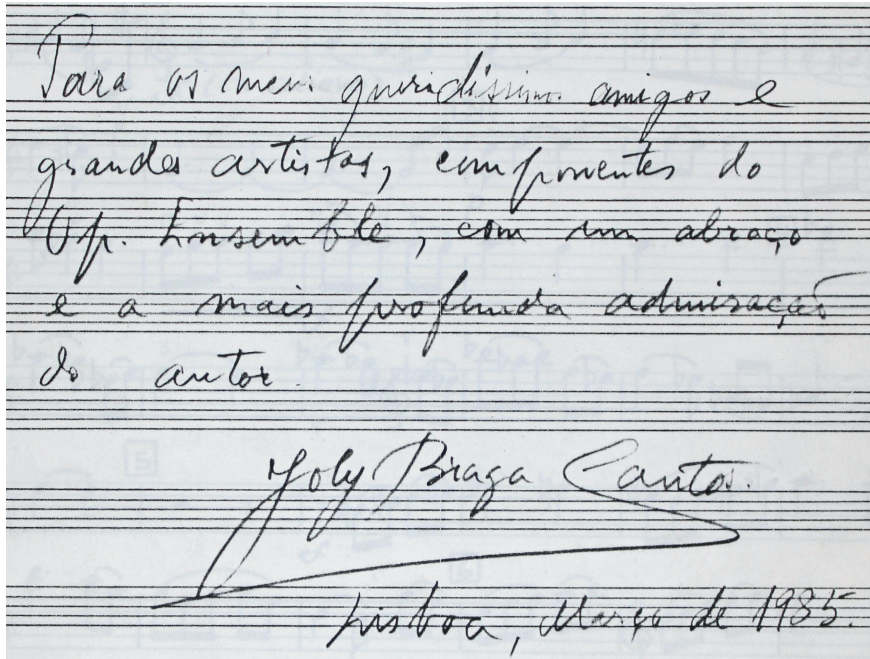 Para os meus queridíssimos amigos e
grandes artistas, componentes do
Op. Ensemble, com um abraço
e a mais profunda admiração
do autor.
Joly Braga Santos.
Lisboa, Março de 1985.
5
6